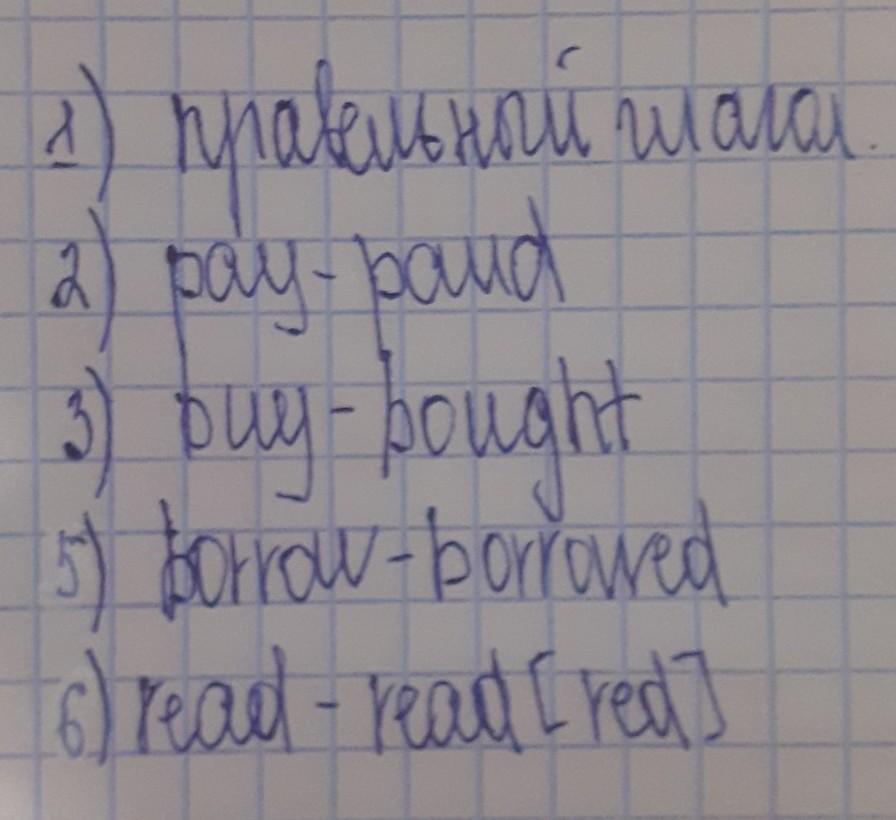 1) правельный шага.
2) pay - paud
3) buy - bought
5) borrow - borrowed
6) read - read [red]